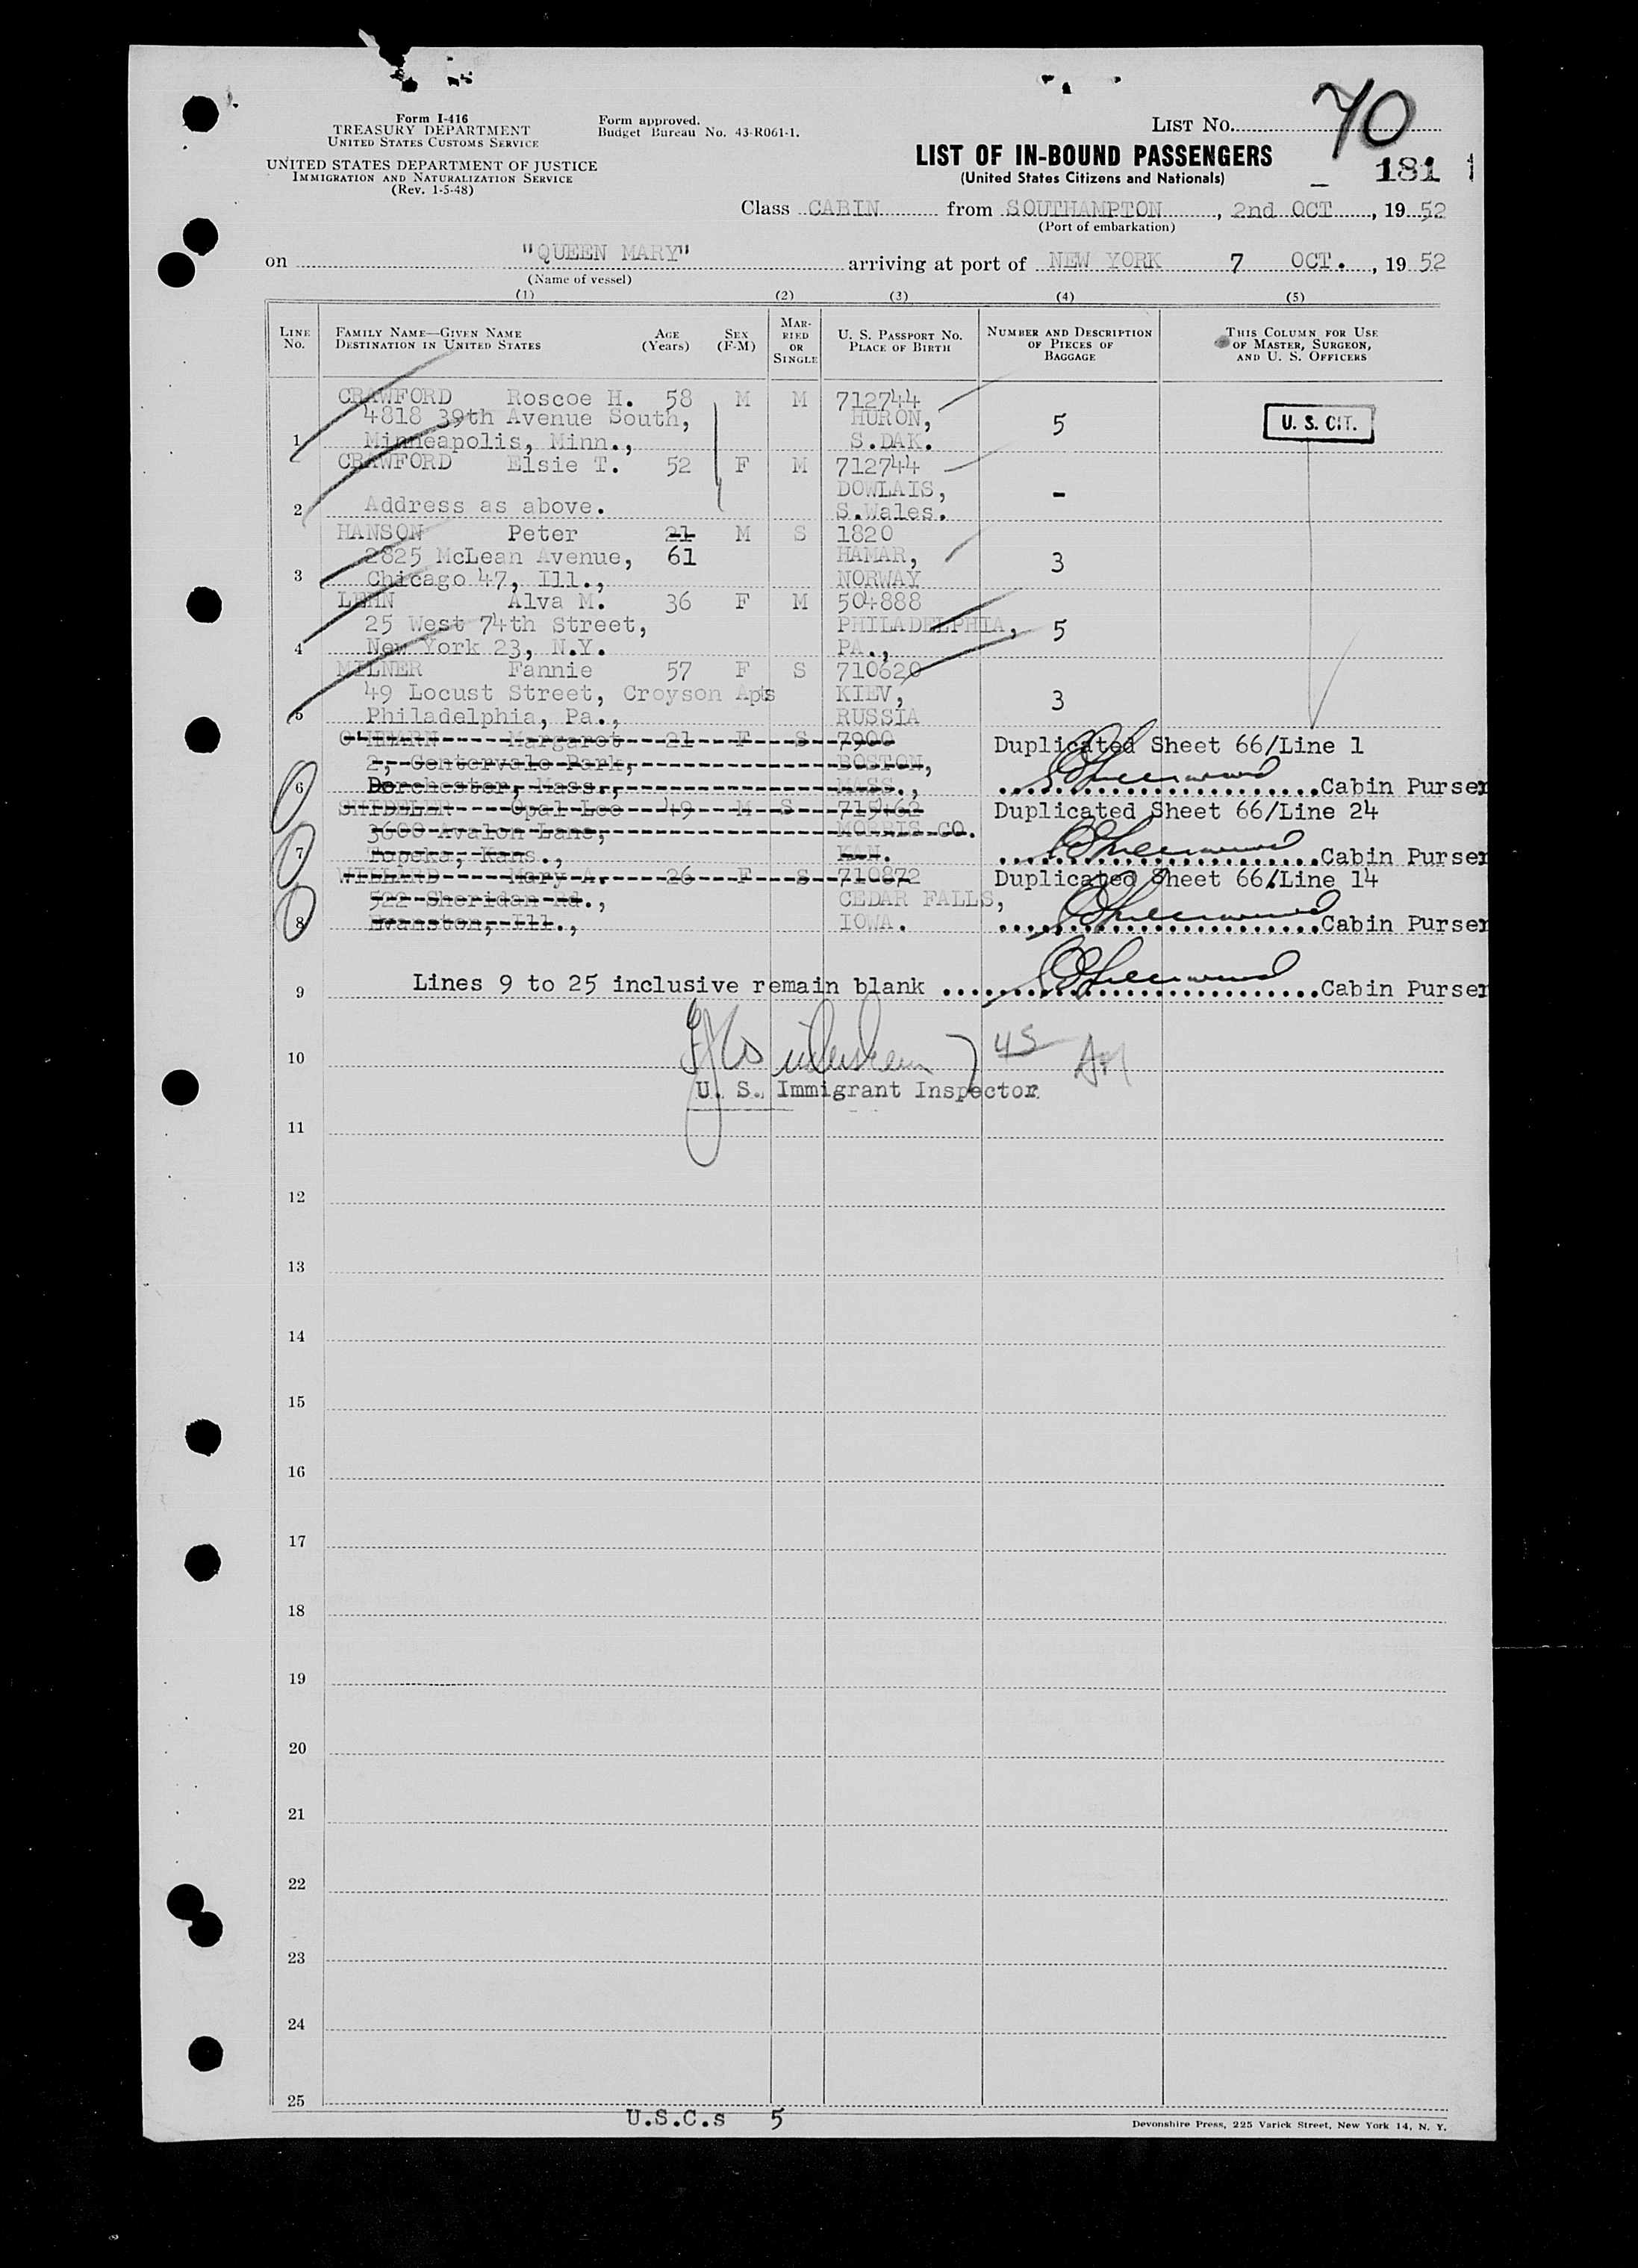 Form I-416
TREASURY DEPARTMENT
UNITED STATES CUSTOMS SERVICE
UNITED STATES DEPARTMENT OF JUSTICE
IMMIGRATION AND NATURALIZATION SERVICE
(Rev. 1-5-48)
Form approved.
Budget Bureau No. 43-R061-1.
LIST No. 70
LIST OF IN-BOUND PASSENGERS
(United States Citizens and Nationals)
181
Class CABIN from SOUTHAMPTON, 2nd OCT, 1952
(Port of embarkation)
on "QUEEN MARY" arriving at port of NEW YORK 7 OCT., 1952
(Name of vessel)
(1) (2) (3) (4) (5)
LINE No.
FAMILY NAME—GIVEN NAME
DESTINATION IN UNITED STATES
AGE (Years)
SEX (F-M)
MARRIED OR SINGLE
U. S. PASSPORT NO.
PLACE OF BIRTH
NUMBER AND DESCRIPTION OF PIECES OF BAGGAGE
THIS COLUMN FOR USE OF MASTER, SURGEON, AND U. S. OFFICERS
CRAWFORD Roscoe H. 58 M M 712744
4818 39th Avenue South, HURON, 5 U. S. CIT.
1 Minneapolis, Minn., S.DAK.
CRAWFORD Elsie T. 52 F M 712744
DOWLAIS, -
2 Address as above. S.Wales.
HANSON Peter 21 M S 1820
2825 McLean Avenue, 61 HAMAR, 3
3 Chicago 47, Ill., NORWAY
LEHN Alva M. 36 F M 504888
25 West 74th Street, PHILADELPHIA, 5
4 New York 23, N.Y. PA.,
MILNER Fannie 57 F S 710620
49 Locust Street, Croyson Apts KIEV, 3
5 Philadelphia, Pa., RUSSIA
O'HEARN Margaret 21 F S 7900 Duplicated Sheet 66/Line 1
2, Centervale Park, BOSTON,
6 Dorchester, Mass., MASS., Cabin Purser
SHIDELER Opal Lee 49 M S 715462 Duplicated Sheet 66/Line 24
3600 Avalon Lane, MORRIS CO.
7 Topeka, Kans., KAN. Cabin Purser
WILLARD Mary A. 26 F S 710872 Duplicated Sheet 66/Line 14
522 Sheridan Rd., CEDAR FALLS,
8 Evanston, Ill., IOWA. Cabin Purser
9 Lines 9 to 25 inclusive remain blank Cabin Purser
7 45 AM
10
U. S. Immigrant Inspector
11
12
13
14
15
16
17
18
19
20
21
22
23
24
25
U.S.C.s 5
Devonshire Press, 225 Varick Street, New York 14, N. Y.